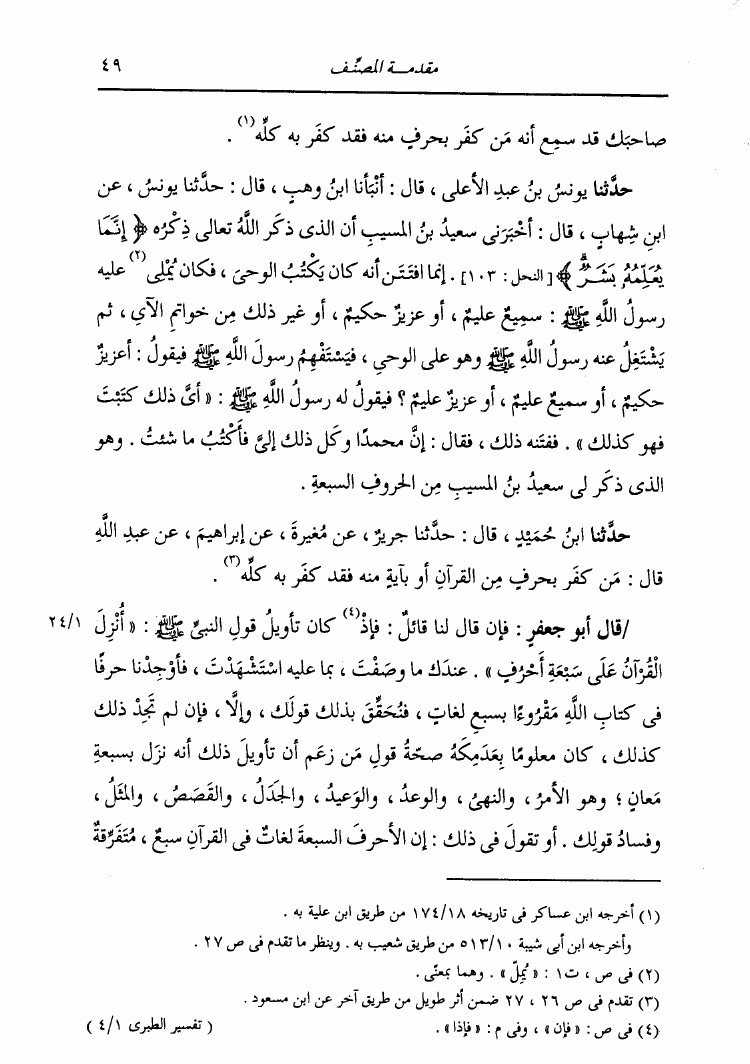 مقدمـــة المصنِّـف ٤٩
صاحبَك قد سمِع أنه مَن كفَر بحرفٍ منه فقد كفَر به كلِّه(١) .
حدَّثنا يونسُ بنُ عبدِ الأعلى ، قال : أنْبَأنا ابنُ وهبٍ ، قال : حدَّثنا يونسُ ، عن
ابنِ شِهابٍ ، قال : أخْبَرَنى سعيدُ بنُ المسيبِ أن الذى ذكَر اللَّهُ تعالى ذِكْرُه ﴿ إِنَّمَا
يُعَلِّمُهُ بَشَرٌ ﴾ [ النحل : ١٠٣ ] . إنما افتَتَن أنه كان يَكْتُبُ الوحىَ ، فكان يُمْلِى(٢) عليه
رسولُ اللَّهِ ﷺ : سميعٌ عليمٌ ، أو عزيزٌ حكيمٌ ، أو غير ذلك مِن خواتمِ الآىِ ، ثم
يَشْتَغِلُ عنه رسولُ اللَّهِ ﷺ وهو على الوحىِ ، فيَسْتَفْهِمُ رسولَ اللَّهِ ﷺ فيقولُ : أعزيزٌ
حكيمٌ ، أو سميعٌ عليمٌ ، أو عزيزٌ عليمٌ ؟ فيقولُ له رسولُ اللَّهِ ﷺ : « أىَّ ذلك كتَبْتَ
فهو كذلك » . ففتَنه ذلك ، فقال : إنَّ محمدًا وكَل ذلك إلىَّ فأكْتُبُ ما شئتُ . وهو
الذى ذكَر لى سعيدُ بنُ المسيبِ مِن الحروفِ السبعةِ .
حدَّثنا ابنُ حُمَيْدٍ ، قال : حدَّثنا جريرٌ ، عن مُغيرةَ ، عن إبراهيمَ ، عن عبدِ اللَّهِ
قال : مَن كفَر بحرفٍ مِن القرآنِ أو بآيةٍ منه فقد كفَر به كلِّه(٣) .
/قال أبو جعفرٍ : فإن قال لنا قائلٌ : فإذْ(٤) كان تأويلُ قولِ النبىِّ ﷺ : « أُنْزِلَ ٢٤/١
الْقُرْآنُ عَلَى سَبْعَةِ أَحْرُفٍ » . عندَك ما وصَفْتَ ، بما عليه اسْتَشْهَدْتَ ، فأَوْجِدْنا حرفًا
فى كتابِ اللَّهِ مَقْرُوءًا بسبعِ لغاتٍ ، فنُحَقِّقَ بذلك قولَك ، وإلَّا ، فإن لم تَجِدْ ذلك
كذلك ، كان معلومًا بِعَدَمِكَهُ صحّةُ قولِ مَن زعَم أن تأويلَ ذلك أنه نزَل بسبعةِ
مَعانٍ ؛ وهو الأمرُ ، والنهىُ ، والوعدُ ، والوَعيدُ ، والجَدَلُ ، والقَصَصُ ، والمثَلُ ،
وفسادُ قولِك . أو تقولَ فى ذلك : إن الأحرفَ السبعةَ لغاتٌ فى القرآنِ سبعٌ ، مُتَفَرِّقةٌ
(١) أخرجه ابن عساكر فى تاريخه ١٧٤/١٨ من طريق ابن علية به .
وأخرجه ابن أبى شيبة ٥١٣/١٠ من طريق شعيب به . وينظر ما تقدم فى ص ٢٧ .
(٢) فى ص ، ت١ : « يُمِلّ » . وهما بمعنًى .
(٣) تقدم فى ص ٢٦ ، ٢٧ ضمن أثر طويل من طريق آخر عن ابن مسعود .
(٤) فى ص : « فإن » ، وفى م : « فإذا » . ( تفسير الطبرى ٤/١ )